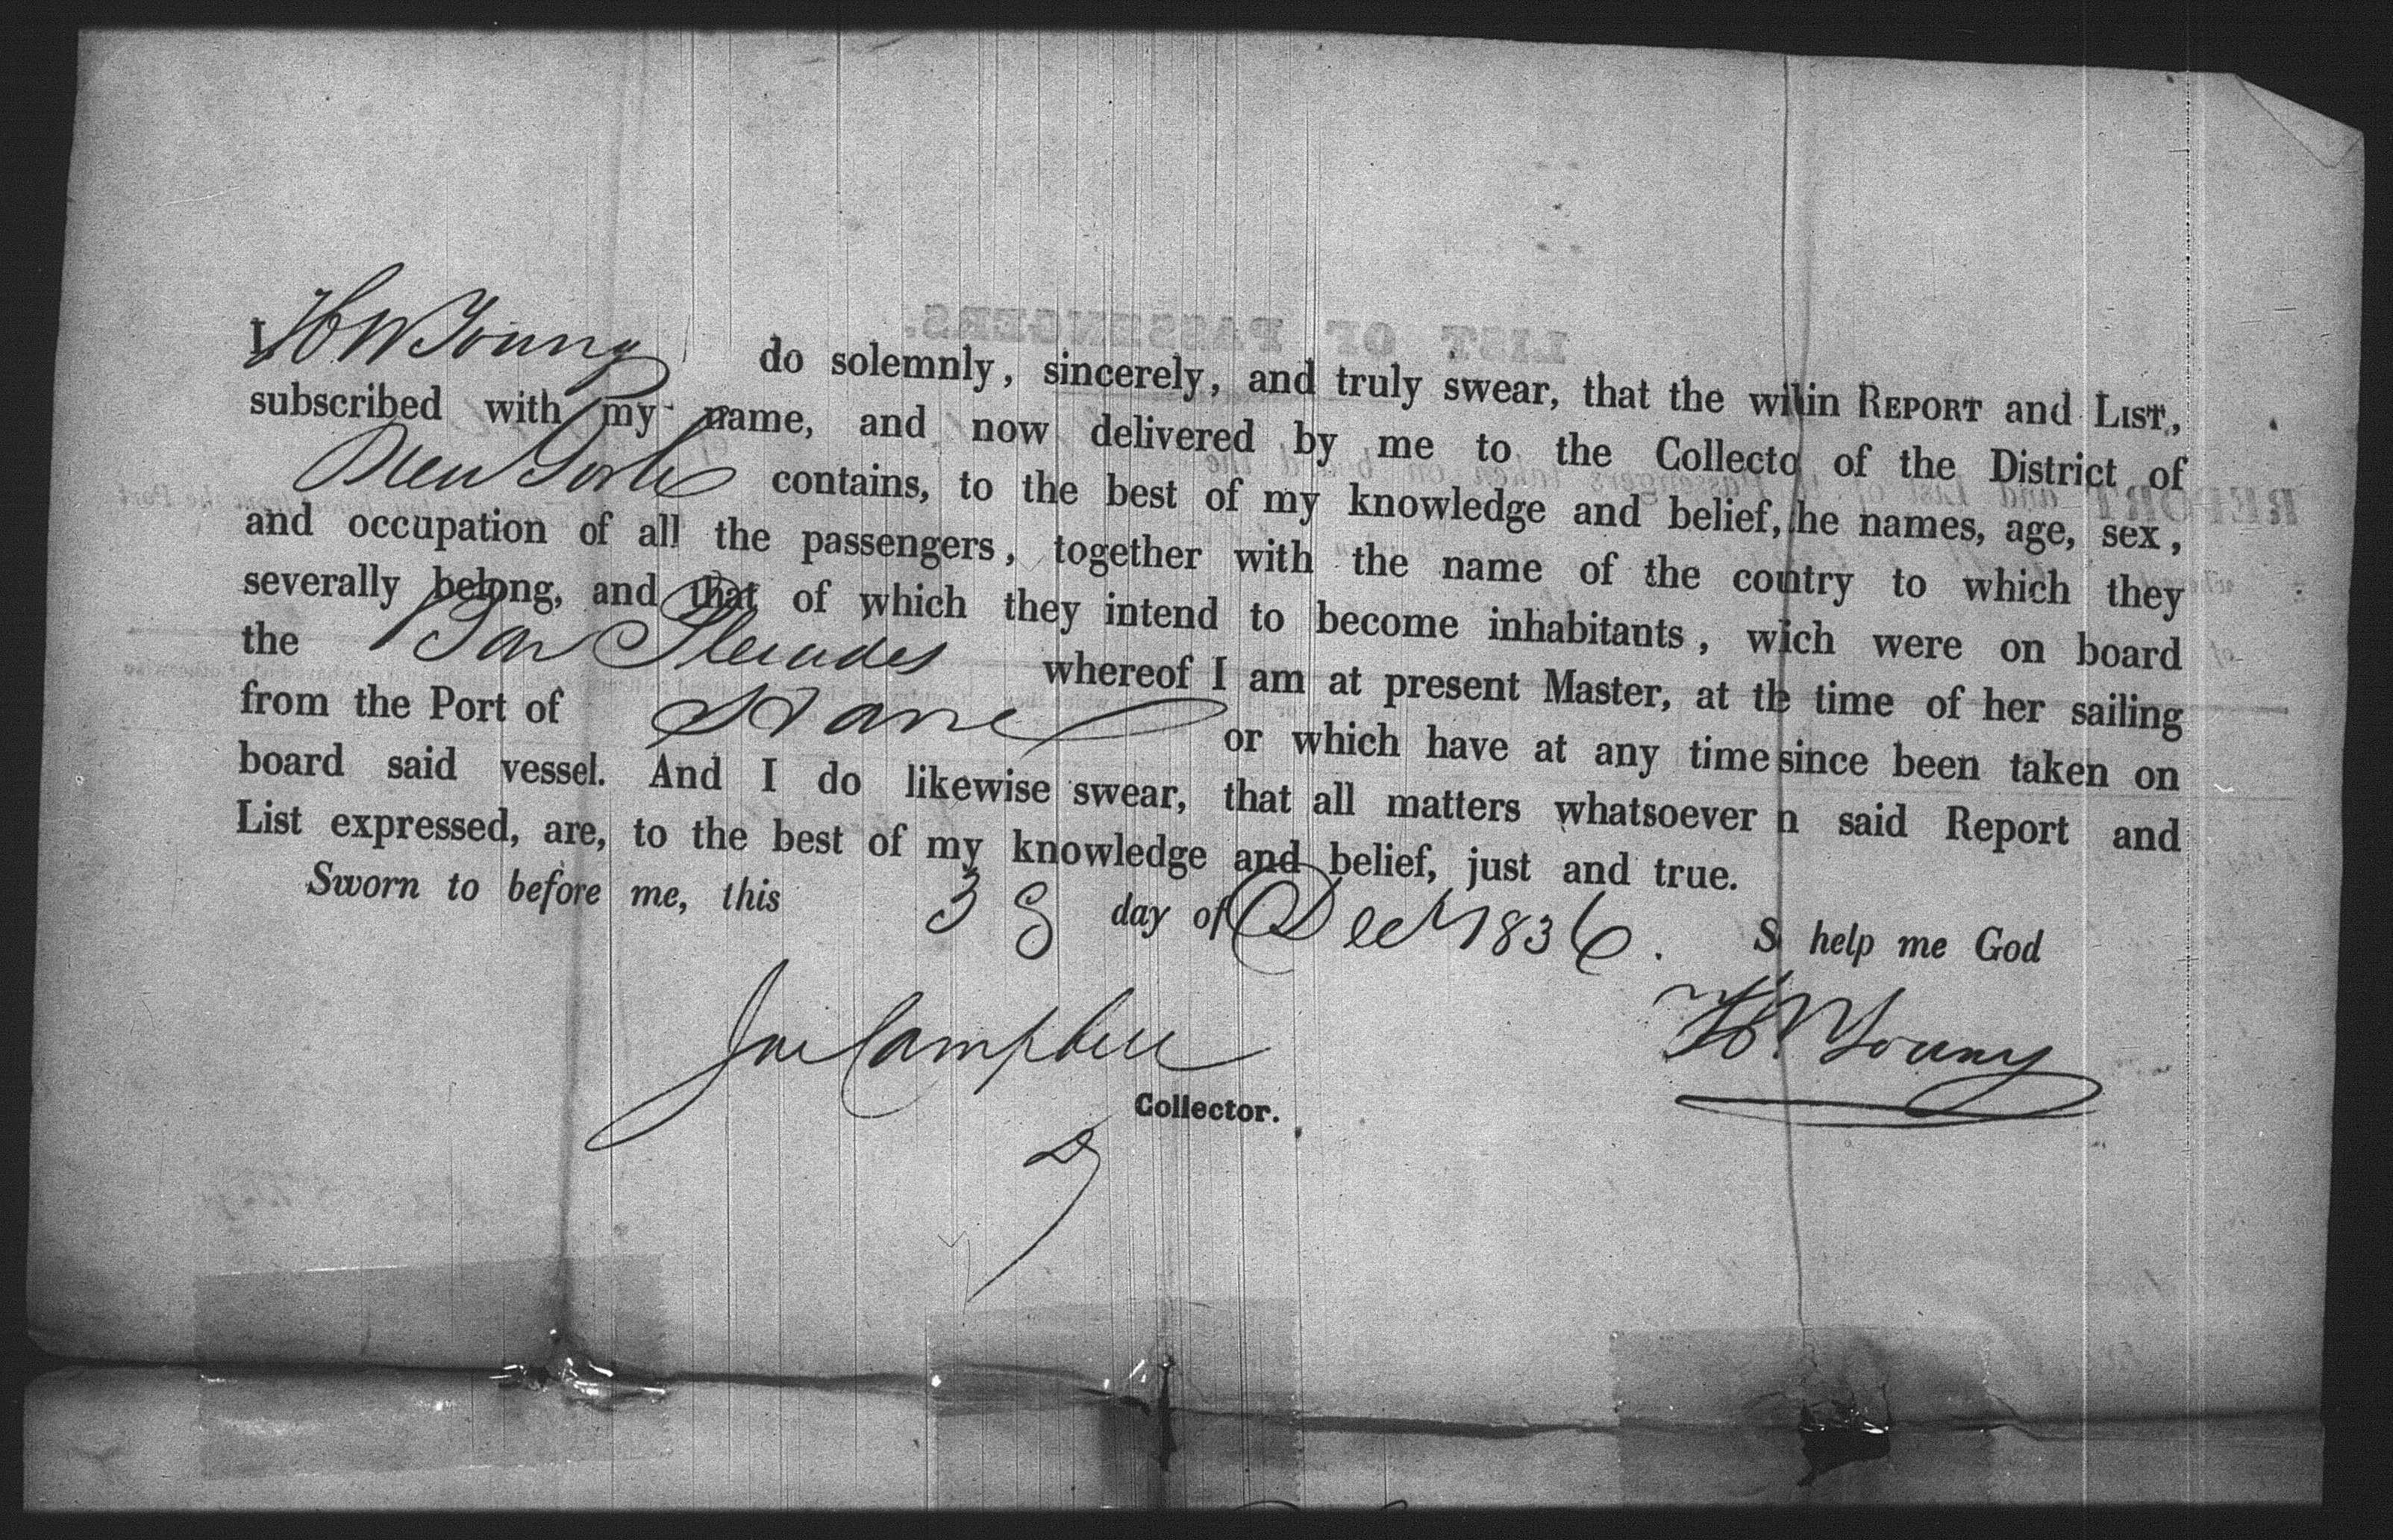 LIST OF PASSENGERS.
I H W Young do solemnly, sincerely, and truly swear, that the wihin REPORT and LIST,
subscribed with my name, and now delivered by me to the Collecto of the District of
New York contains, to the best of my knowledge and belief, he names, age, sex,
and occupation of all the passengers, together with the name of the country to which they
severally belong, and that of which they intend to become inhabitants, wich were on board
the Bar Pleiades whereof I am at present Master, at the time of her sailing
from the Port of Havre or which have at any time since been taken on
board said vessel. And I do likewise swear, that all matters whatsoever n said Report and
List expressed, are, to the best of my knowledge and belief, just and true.
Sworn to before me, this 3 day of Dec 1836. S help me God
Campbell H W Young
Collector.